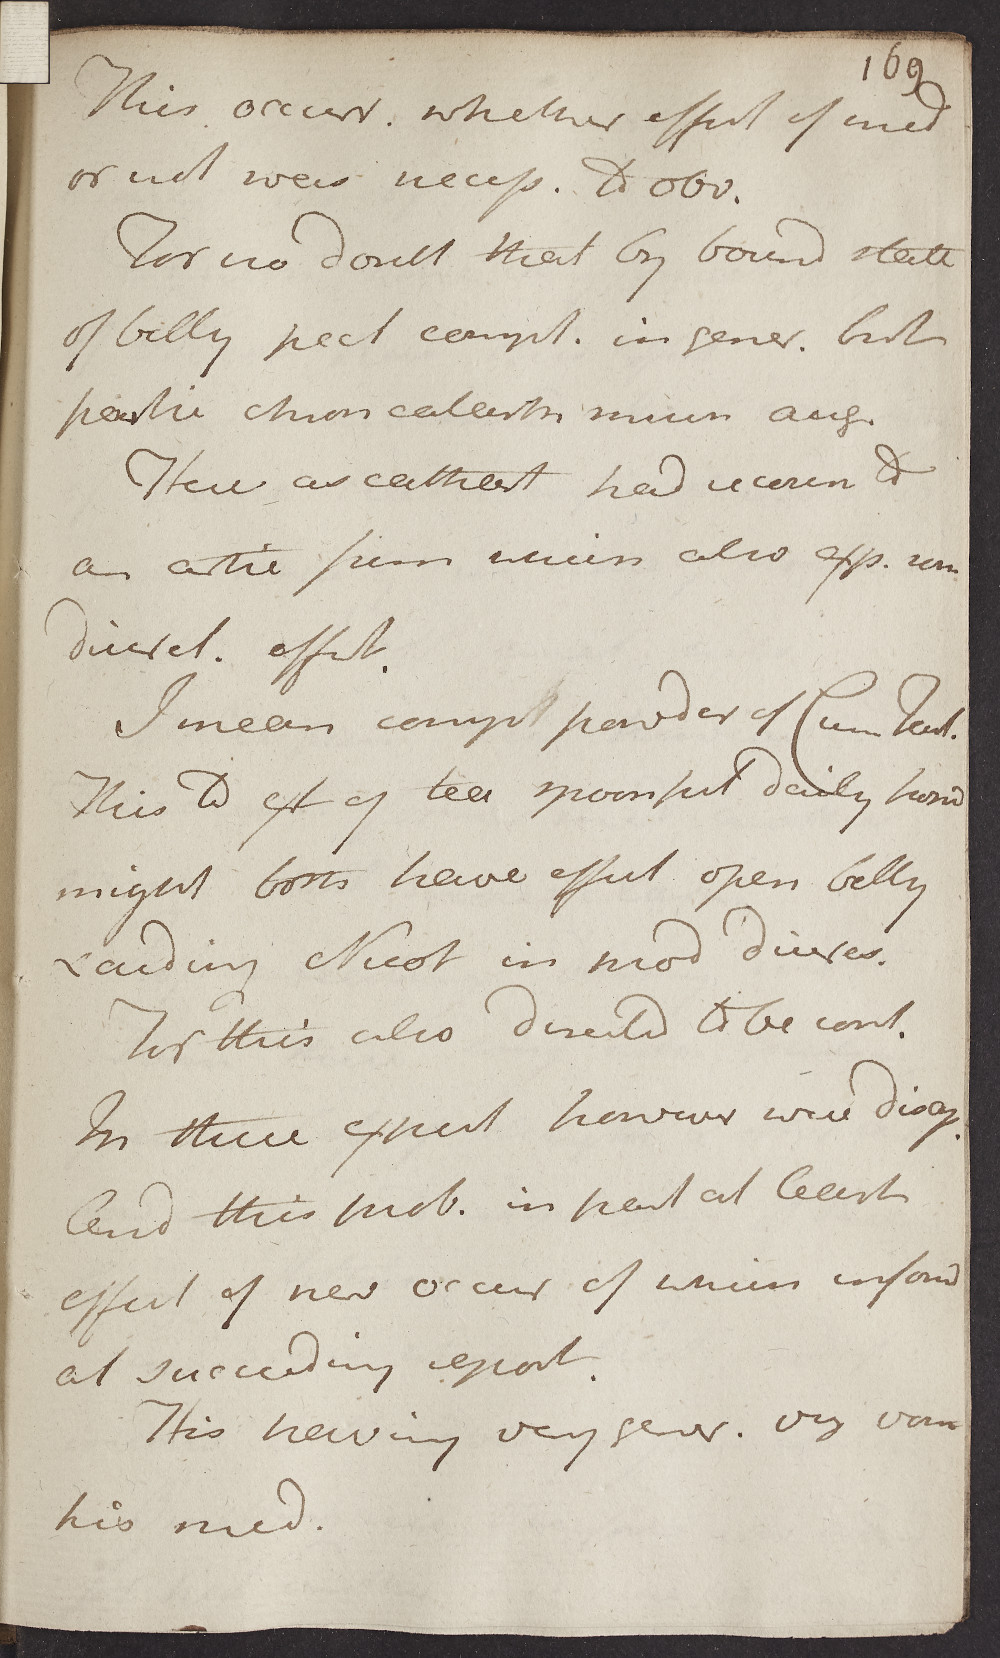 169
This occurr. whether effect of med
or not was necess. to obv.
For no doubt that by bound state
of belly pect compl. in gener. but
partic chron catarrh much aug.
Here as cathart had recours to
an artic from which also exp. som
diuret. effect.
I mean compd powder of Crem Tart.
This to ext of tea spoonful daily hord
might both have effect open belly
& aiding Nicot in mod diures.
For this also directed to be cont.
In these expect however were disap.
And this prob. in part at least
effect of new occur of which inford
at succeeding report.
His having very gener. by vom
his med.